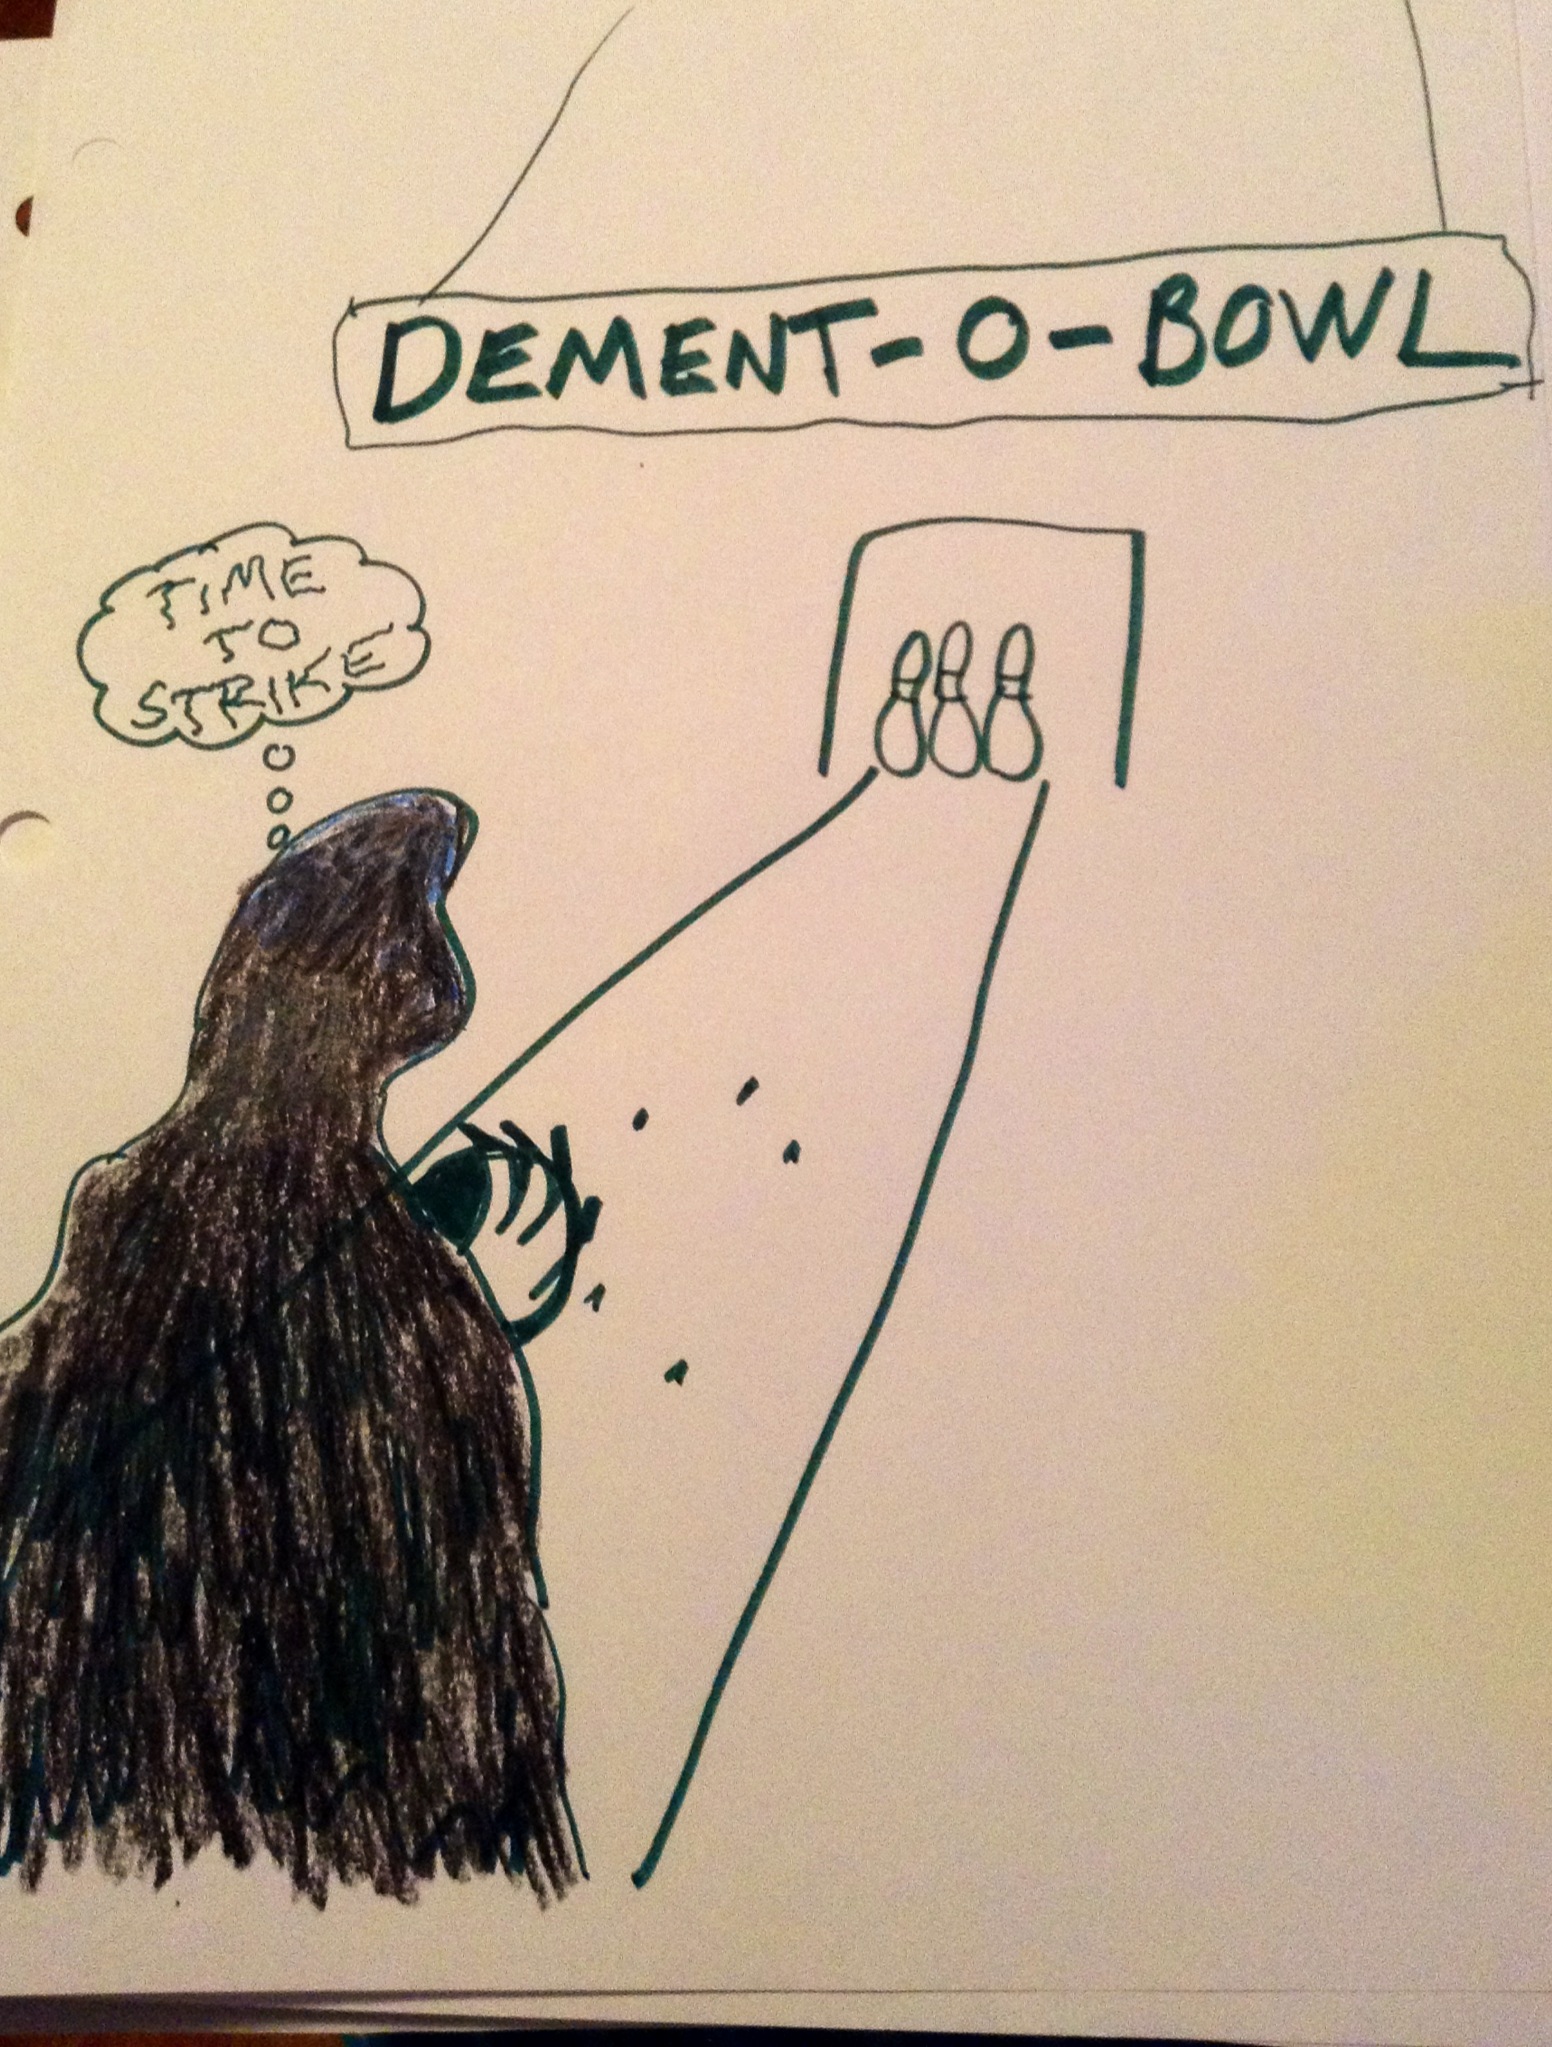 DEMENT-O-BOWL
TIME
TO
STRIKE